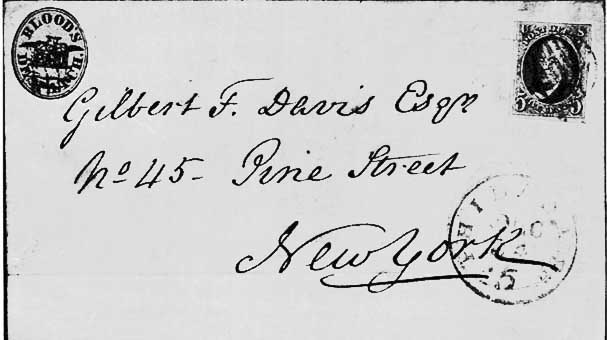 BLOOD'S
DESPATCH.
Gilbert F. Davis Esqr
No 45- Pine Street
New York
5 5
5